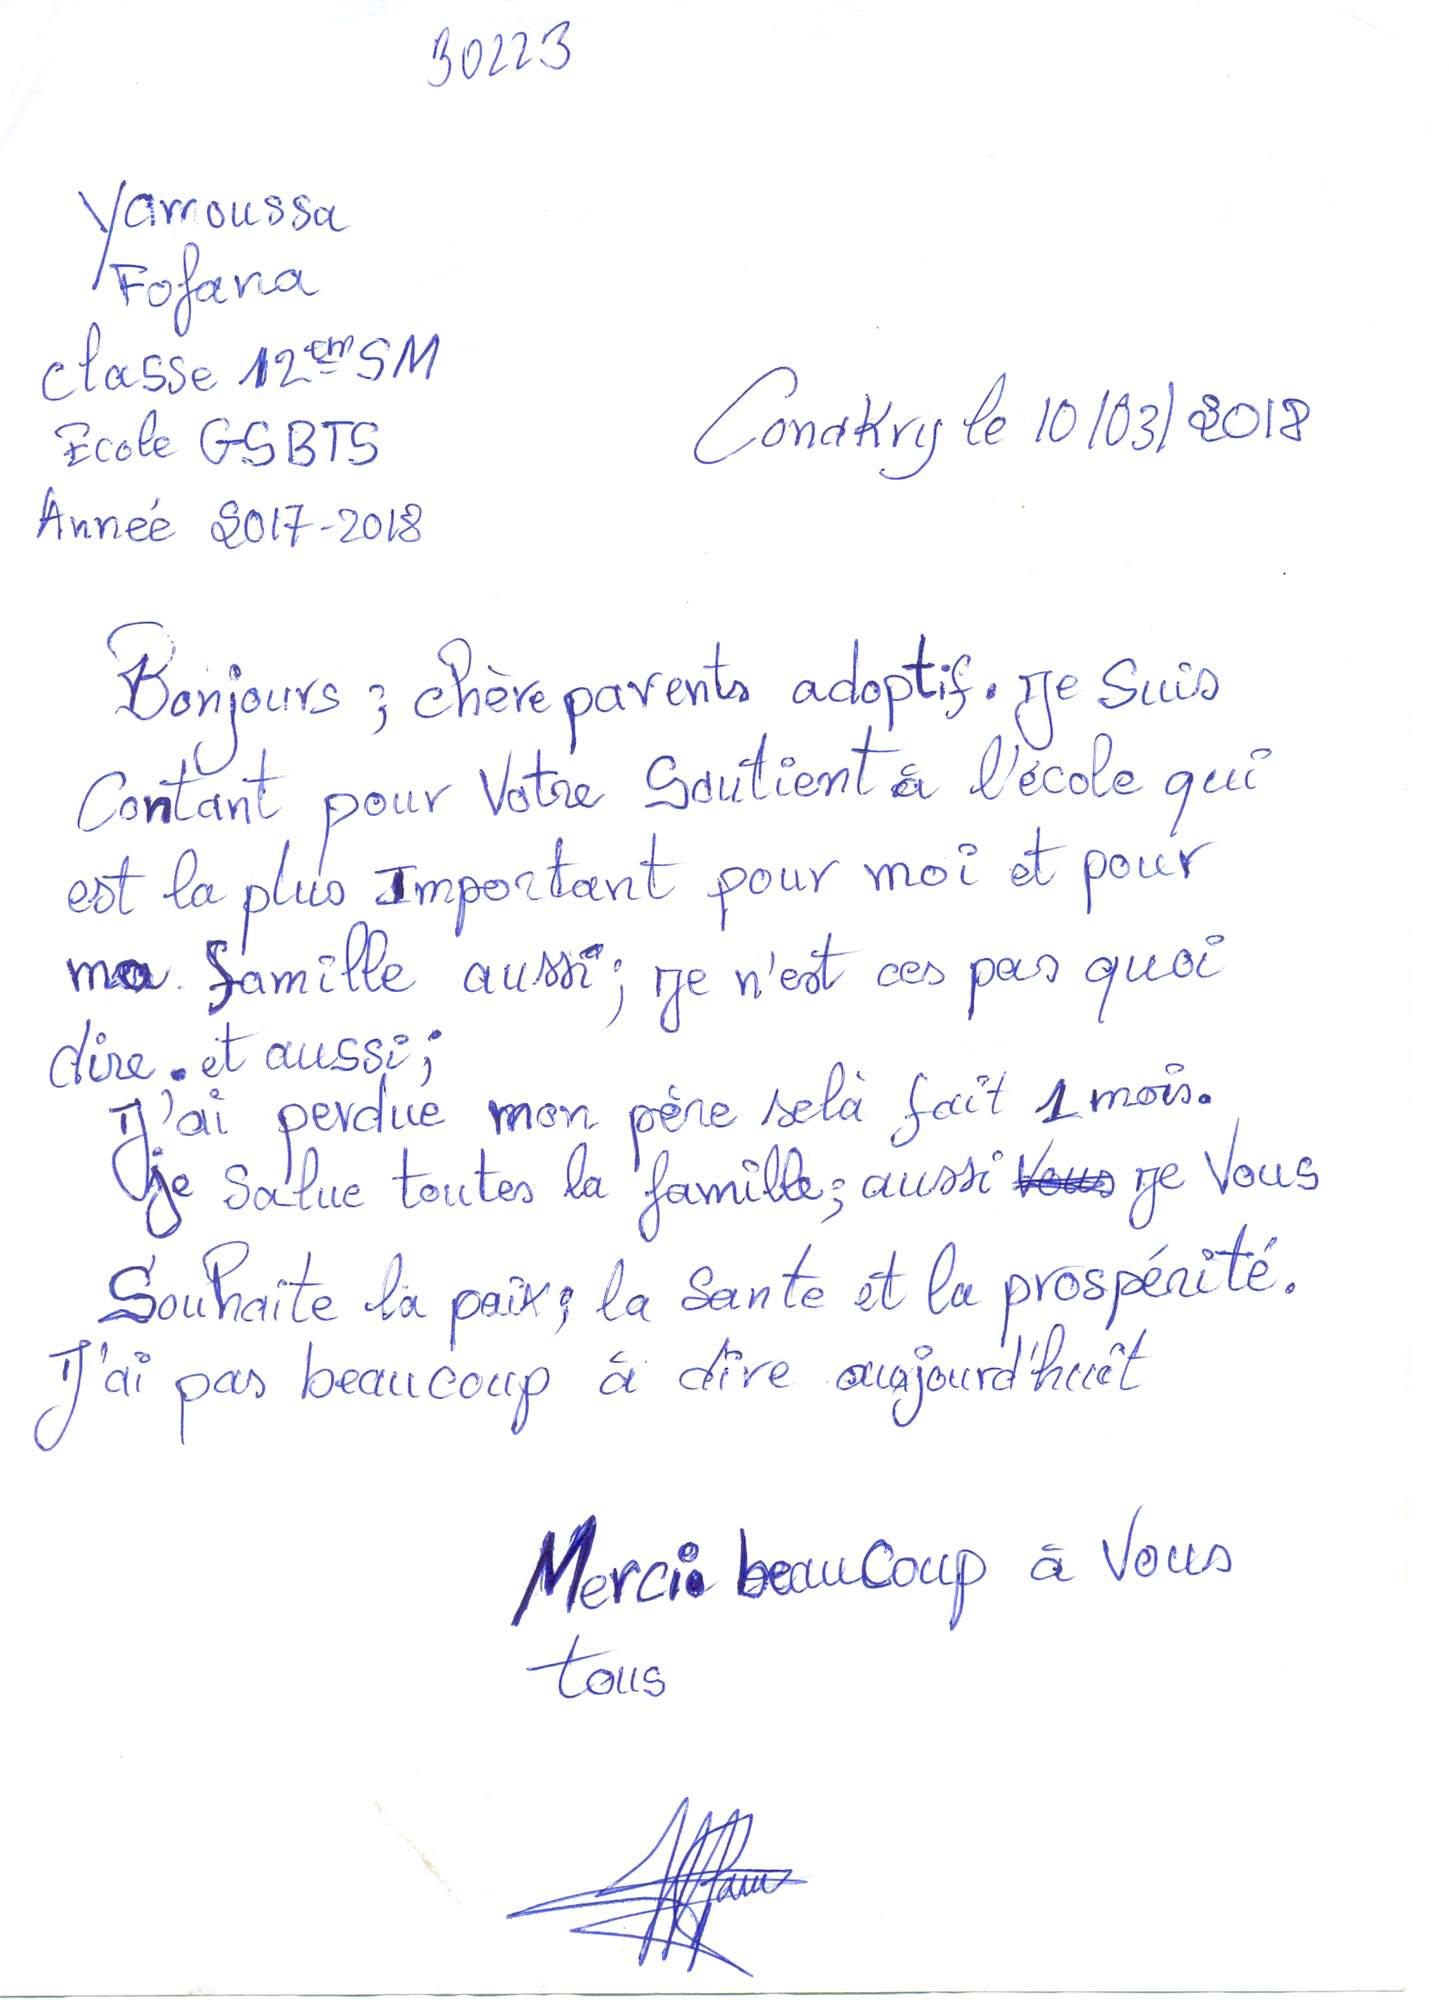 30223
Yamoussa
Fofana
classe 12em SM
Ecole GSBTS
Conakry le 10/03/2018
Anneé 2017-2018
Bonjours ; chère parents adoptif. Je suis
Contant pour votre Soutient à l'école qui
est la plus Important pour moi et pour
ma famille aussi ; je n'est ces pas quoi
dire. et aussi ;
J'ai perdue mon père selà fait 1 mois.
je salue toutes la famille ; aussi vous je vous
Souhaite la paix ; la sante et la prospérité.
J'ai pas beaucoup à dire aujourd'huit
Merci beaucoup à vous
tous